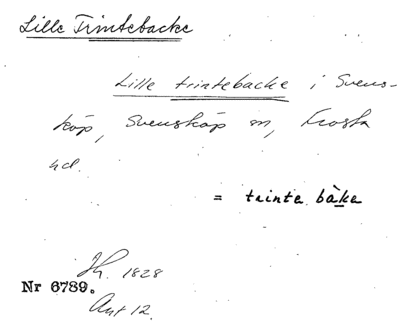 Lille Trintebacke
Lille trintebacke i Svens-
köp, Svensköp sn, Frosta
hd.
= trinta bàka
Jh. 1828
Nr 6789.
Ant 12.